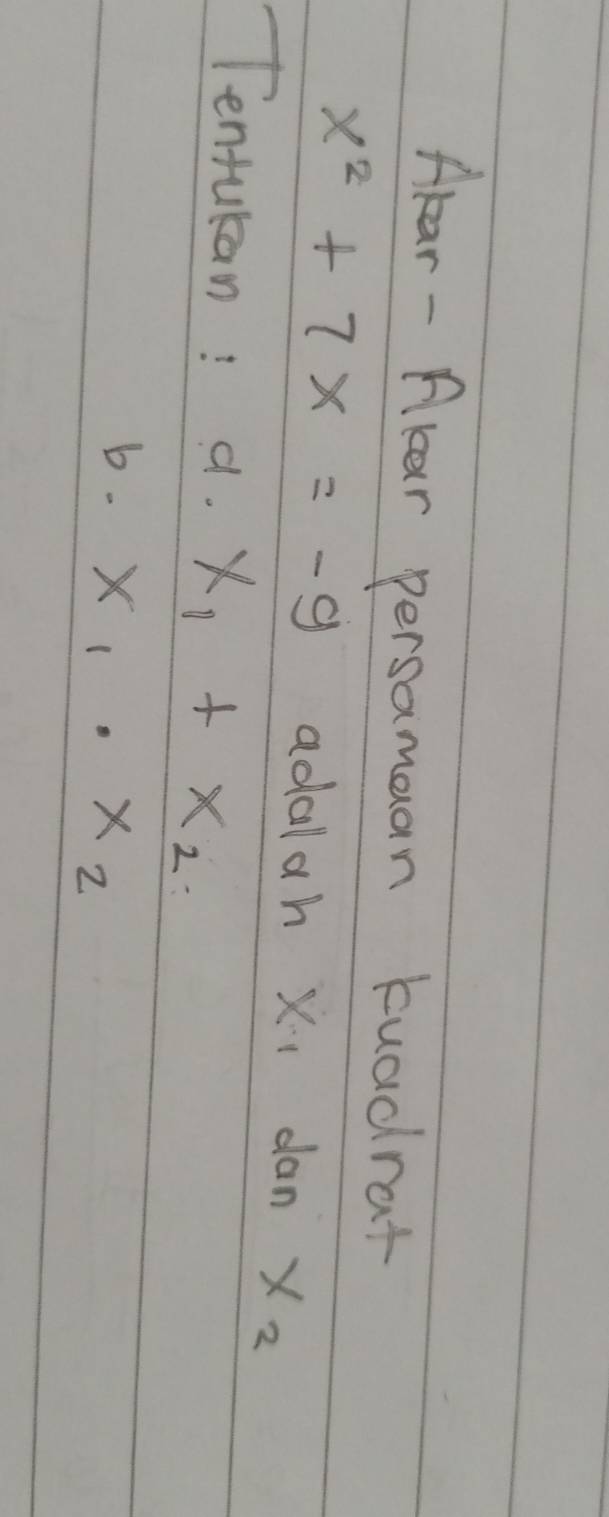 Akar - Akar persamaan kuadrat
x² + 7x = -9 adalah x₁ dan x₂
Tentukan : a. x₁ + x₂.
b. x₁ . x₂